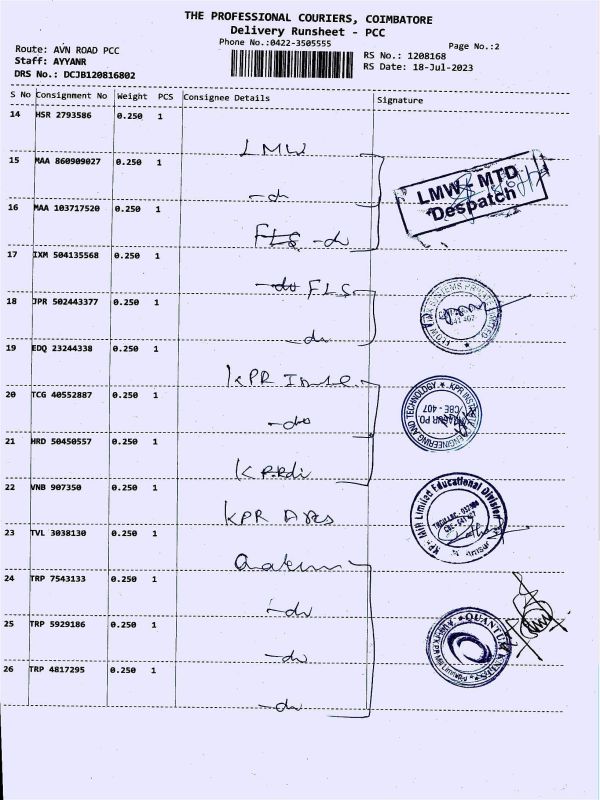 THE PROFESSIONAL COURIERS, COIMBATORE
Delivery Runsheet - PCC
Phone No.:0422-3505555
Page No.:2
Route: AVN ROAD PCC
Staff: AYYANR
DRS No.: DCJB120816802
RS No.: 1208168
RS Date: 18-Jul-2023
S No Consignment No Weight PCS Consignee Details Signature
14 HSR 2793586 0.250 1
LMW
15 MAA 860909027 0.250 1
-do
LMW - MTD
Despatch
16 MAA 103717520 0.250 1
FLS -do
17 IXM 504135568 0.250 1
-do FLS
18 JPR 502443377 0.250 1
-do
19 EDQ 23244338 0.250 1
KPR
20 TCG 40552887 0.250 1
-do
ENGINEERING AND TECHNOLOGY * KPR
CBE - 407
21 HRD 50450557 0.250 1
22 VNB 907350 0.250 1
KPR
Mill Limited Educational Division
23 TVL 3038130 0.250 1
24 TRP 7543133 0.250 1
-do
25 TRP 5929186 0.250 1
-do
QUANTUM KNITS
26 TRP 4817295 0.250 1
-do